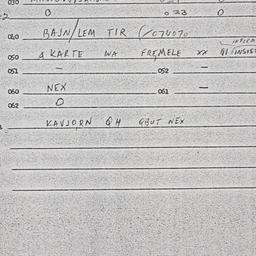 030
0 023 0
040 BAJN/LEM TIR (/074070
050 & KARTE WA FREMELE XX
051 — 052 —
060 NEX 061 —
062 O
KAVJORN QH QBUT NEX